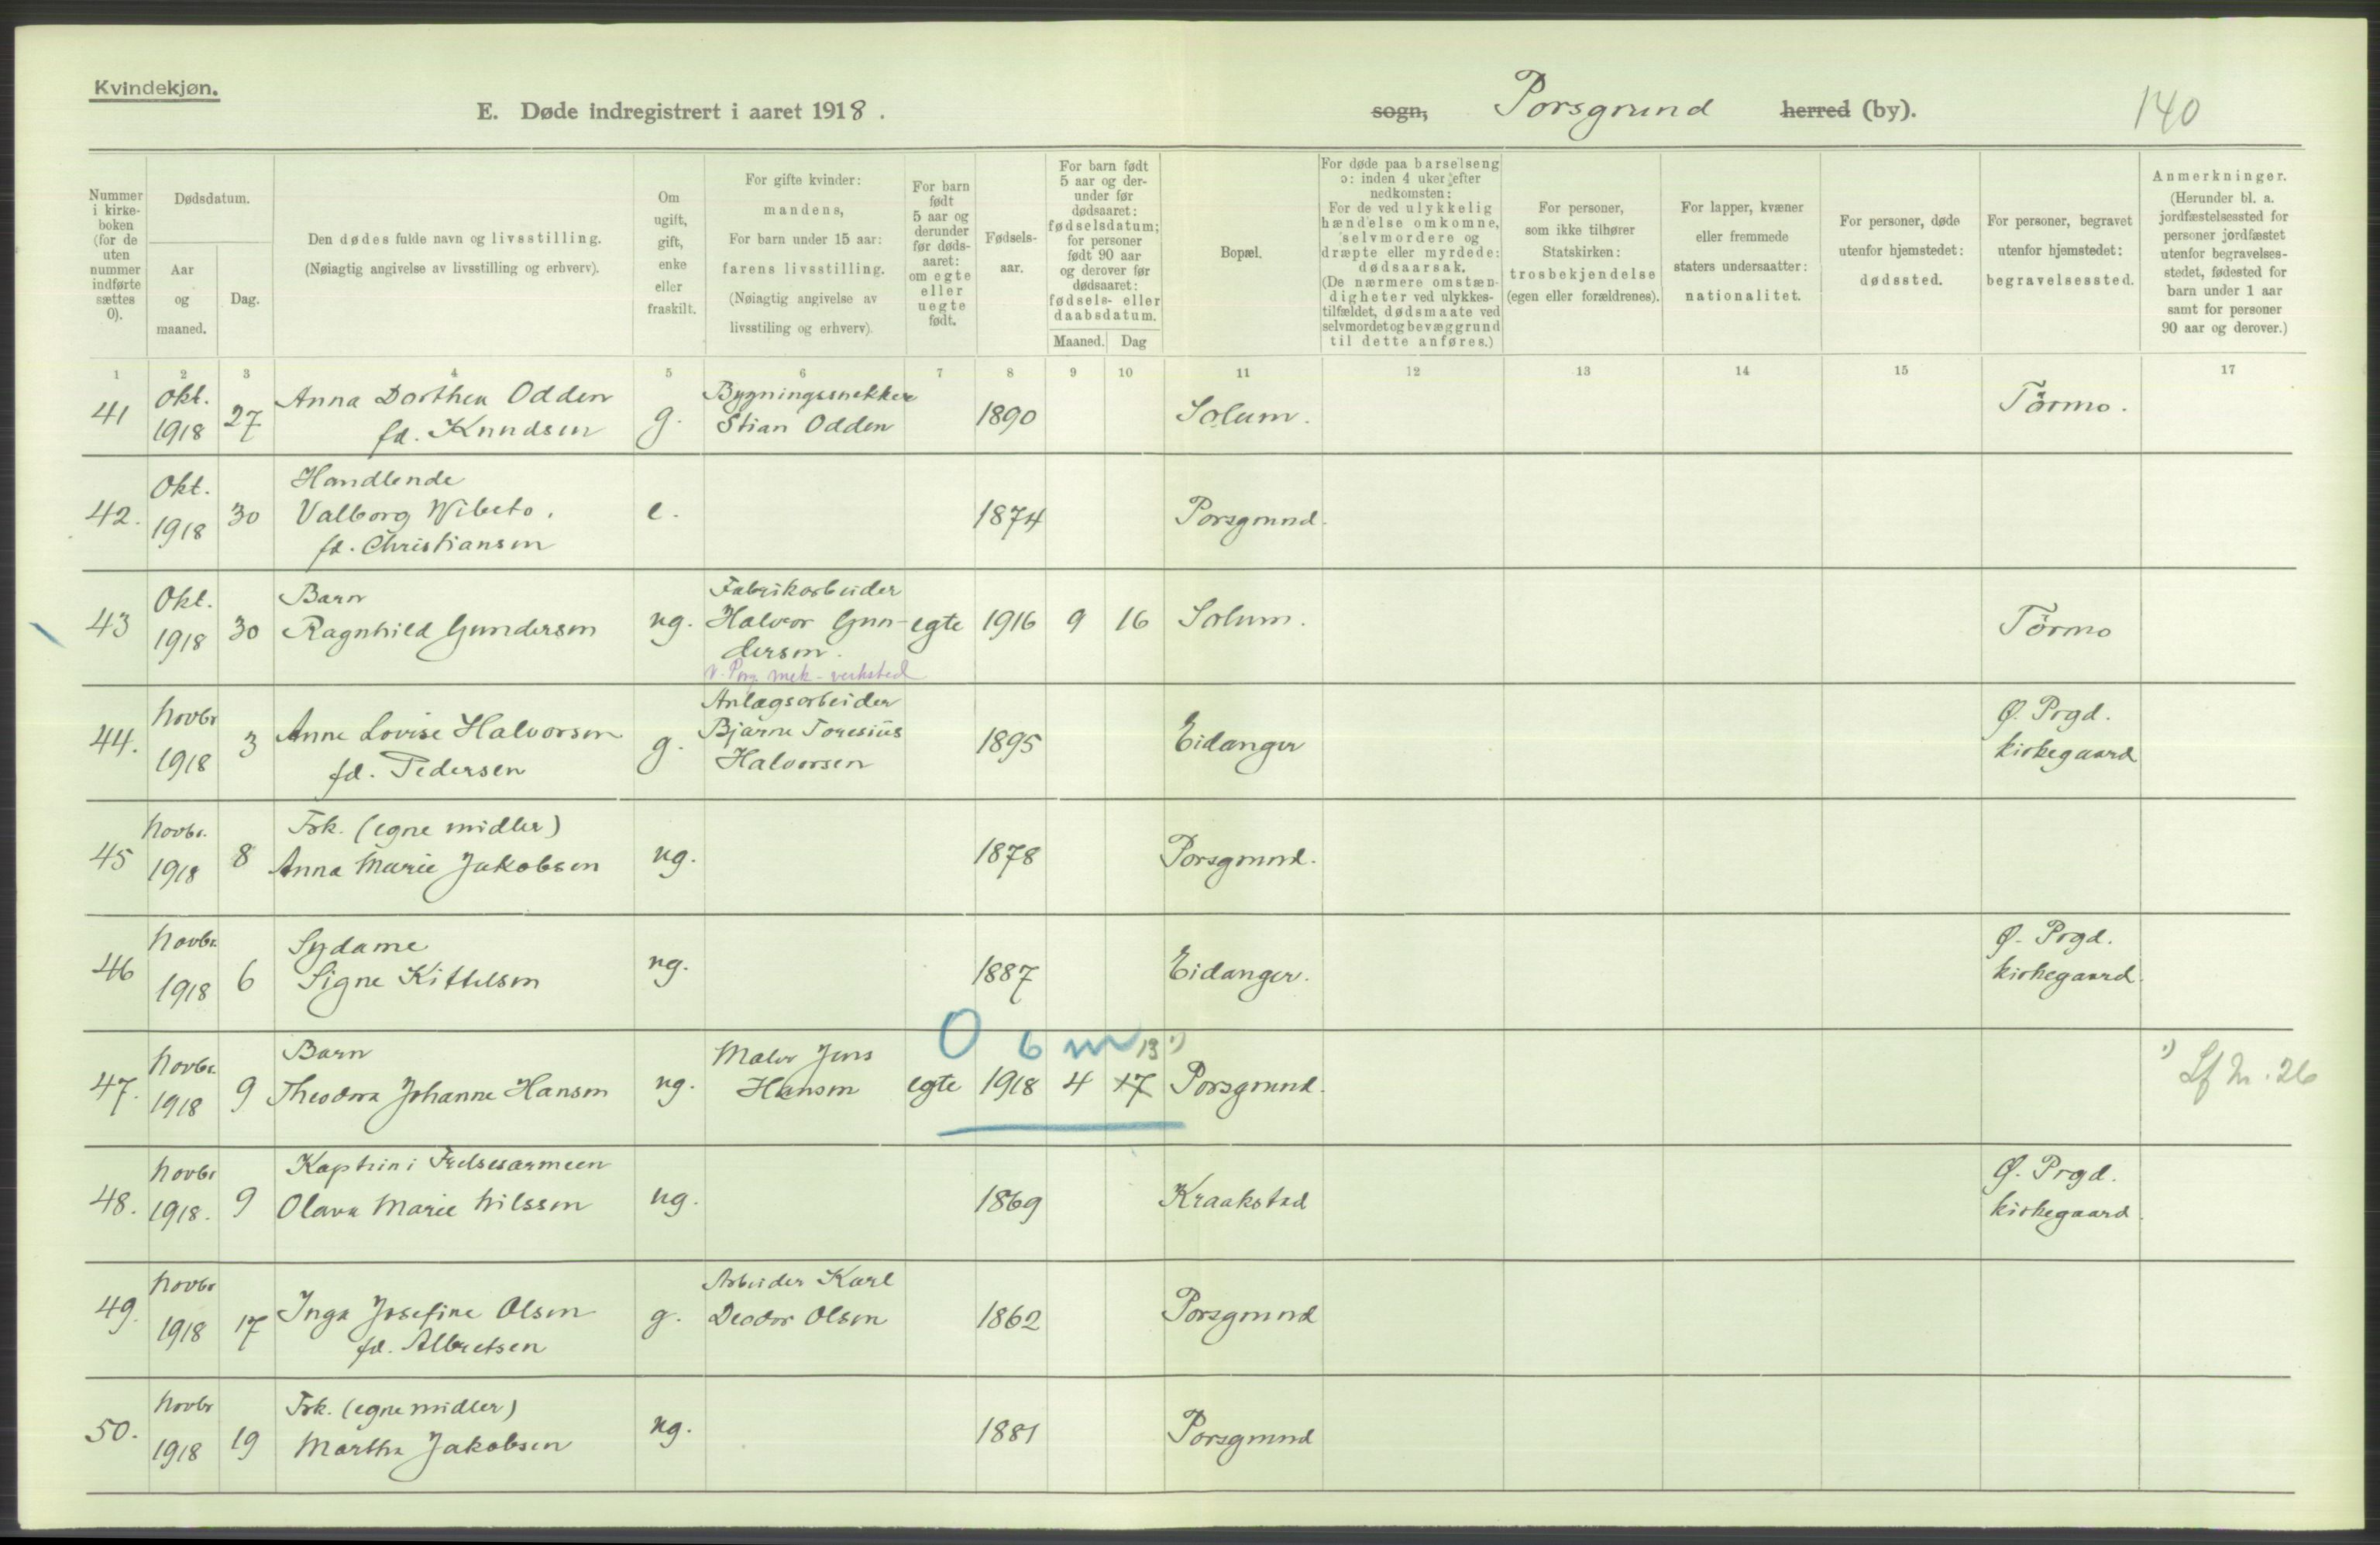 Kvindekjøn.
E. Døde indregistrert i aaret 1918.
sogn, Porsgrund herred (by).
140
Nummer i kirke-boken (for de uten nummer indførte sættes 0).
Dødsdatum.
Aar og maaned.
Dag.
Den dødes fulde navn og livsstilling.
(Nøiagtig angivelse av livsstilling og erhverv).
Om ugift, gift, enke eller fraskilt.
For gifte kvinder:
mandens,
For barn under 15 aar:
farens livsstilling.
(Nøiagtig angivelse av
livsstiling og erhverv).
For barn født 5 aar og derunder før døds-aaret: om egte eller uegte født.
Fødsels-aar.
For barn født 5 aar og der-under før dødsaaret: fødselsdatum; for personer født 90 aar og derover før dødsaaret: fødsels- eller daabsdatum.
Maaned. Dag
Bopæl.
For døde paa barselseng
ɔ: inden 4 uker efter
nedkomsten:
For de ved ulykkelig
hændelse omkomne,
selvmordere og
dræpte eller myrdede:
dødsaarsak.
(De nærmere omstæn-
digheter ved ulykkes-
tilfældet, dødsmaate ved
selvmordet og bevæggrund
til dette anføres.)
For personer,
som ikke tilhører
Statskirken:
trosbekjendelse
(egen eller forældrenes).
For lapper, kvæner
eller fremmede
staters undersaatter:
nationalitet.
For personer, døde
utenfor hjemstedet:
dødssted.
For personer, begravet
utenfor hjemstedet:
begravelsessted.
Anmerkninger.
(Herunder bl. a.
jordfæstelsessted for
personer jordfæstet
utenfor begravelses-
stedet, fødested for
barn under 1 aar
samt for personer
90 aar og derover.)
1 2 3 4 5 6 7 8 9 10 11 12 13 14 15 17
41 Okt. 1918 27 Anna Dorthea Odden fd. Knudsen g. Bygningssnekker Stian Odden 1890 Solum. Törmo.
42. Okt. 1918 30 Handlende Valborg Wibeto. fd. Christiansen e. 1874 Porsgrund.
43 Okt. 1918 30 Barn Ragnhild Gundersen ug. Fabrikarbeider Halvor Gun-dersen. v. Porsg. mek. verksted egte 1916 9 16 Solum. Törmo
44. Novbr 1918 3 Anne Lovise Halvorsen fd. Pedersen g. Anlægsarbeider Bjarne Toresius Halvorsen 1895 Eidanger Ø. Prgd. kirkegaard
45 Novbr. 1918 8 Frk. (egne midler) Anna Marie Jakobsen ug. 1878 Porsgrund.
46 Novbr. 1918 6 Sydame Signe Kittelsen ug. 1887 Eidanger. Ø. Prgd. kirkegaard.
0 6 m 13 ¹)
47. Novbr. 1918 9 Barn Theodora Johanne Hansen ug. Maler Jens Hansen egte 1918 4 17 Porsgrund. ¹) Lf. nr. 26
48. Novbr 1918. 9 Kaptein i Frelsesarmeen Olava Marie Nilssen ug. 1869 Kraakstad Ø. Prgd. kirkegaard.
49. Novbr 1918 17 Inga Josefine Olsen fd. Albretsen g. Arbeider Karl Deodor Olsen 1862 Porsgrund
50. Novbr 1918 19 Frk. (egne midler) Martha Jakobsen ug. 1881 Porsgrund